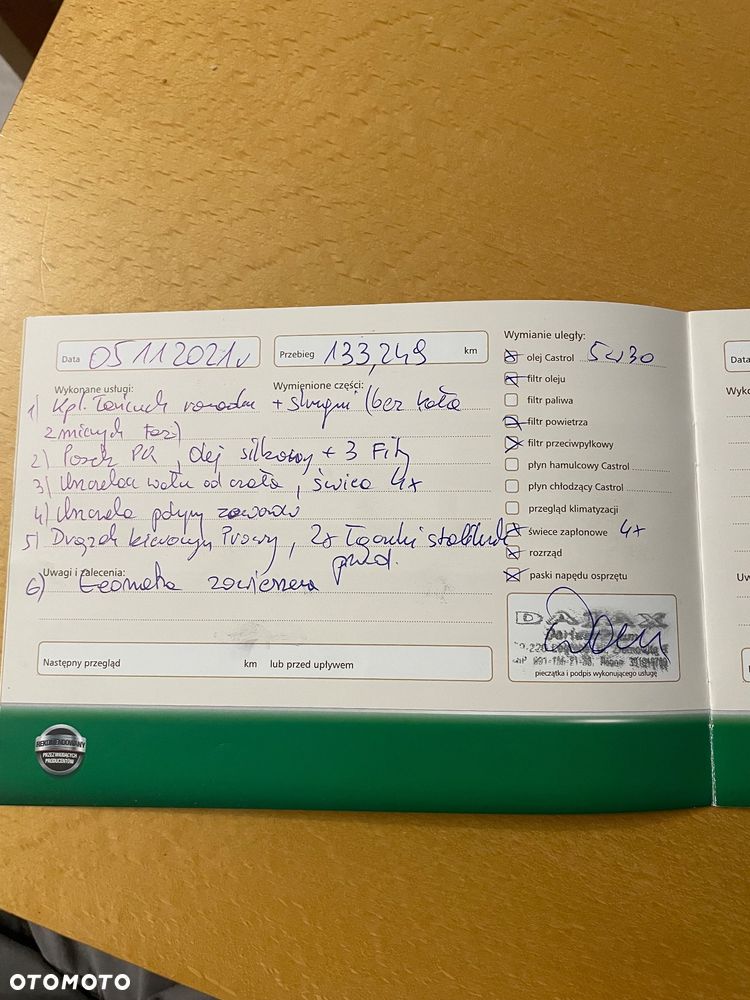 Data 05 11 2021r
Przebieg 133,249 km
Wykonane usługi: Wymienione części:
1) Kpl. Łańcuch rozrządu + ślizgi (bez koła
zmiennych faz)
2) Pasek PK, olej silkowy + 3 Filtry
3) Uszczelka wału od czoła, świece 4x
4) Uszczelka pokrywy zaworów
5) Drążek kierowniczy Prawy, 2x Łączniki stabilizat
przód.
Uwagi i zalecenia:
6) Geometria zawieszenia
Następny przegląd km lub przed upływem
Wymianie uległy:
olej Castrol 5W30
filtr oleju
filtr paliwa
filtr powietrza
filtr przeciwpyłkowy
płyn hamulcowy Castrol
płyn chłodzący Castrol
przegląd klimatyzacji
świece zapłonowe 4x
rozrząd
paski napędu osprzętu
pieczątka i podpis wykonującego usługę
REKOMENDOWANY
PRZEZ WIODĄCYCH
PRODUCENTÓW
Data
OTOMOTO